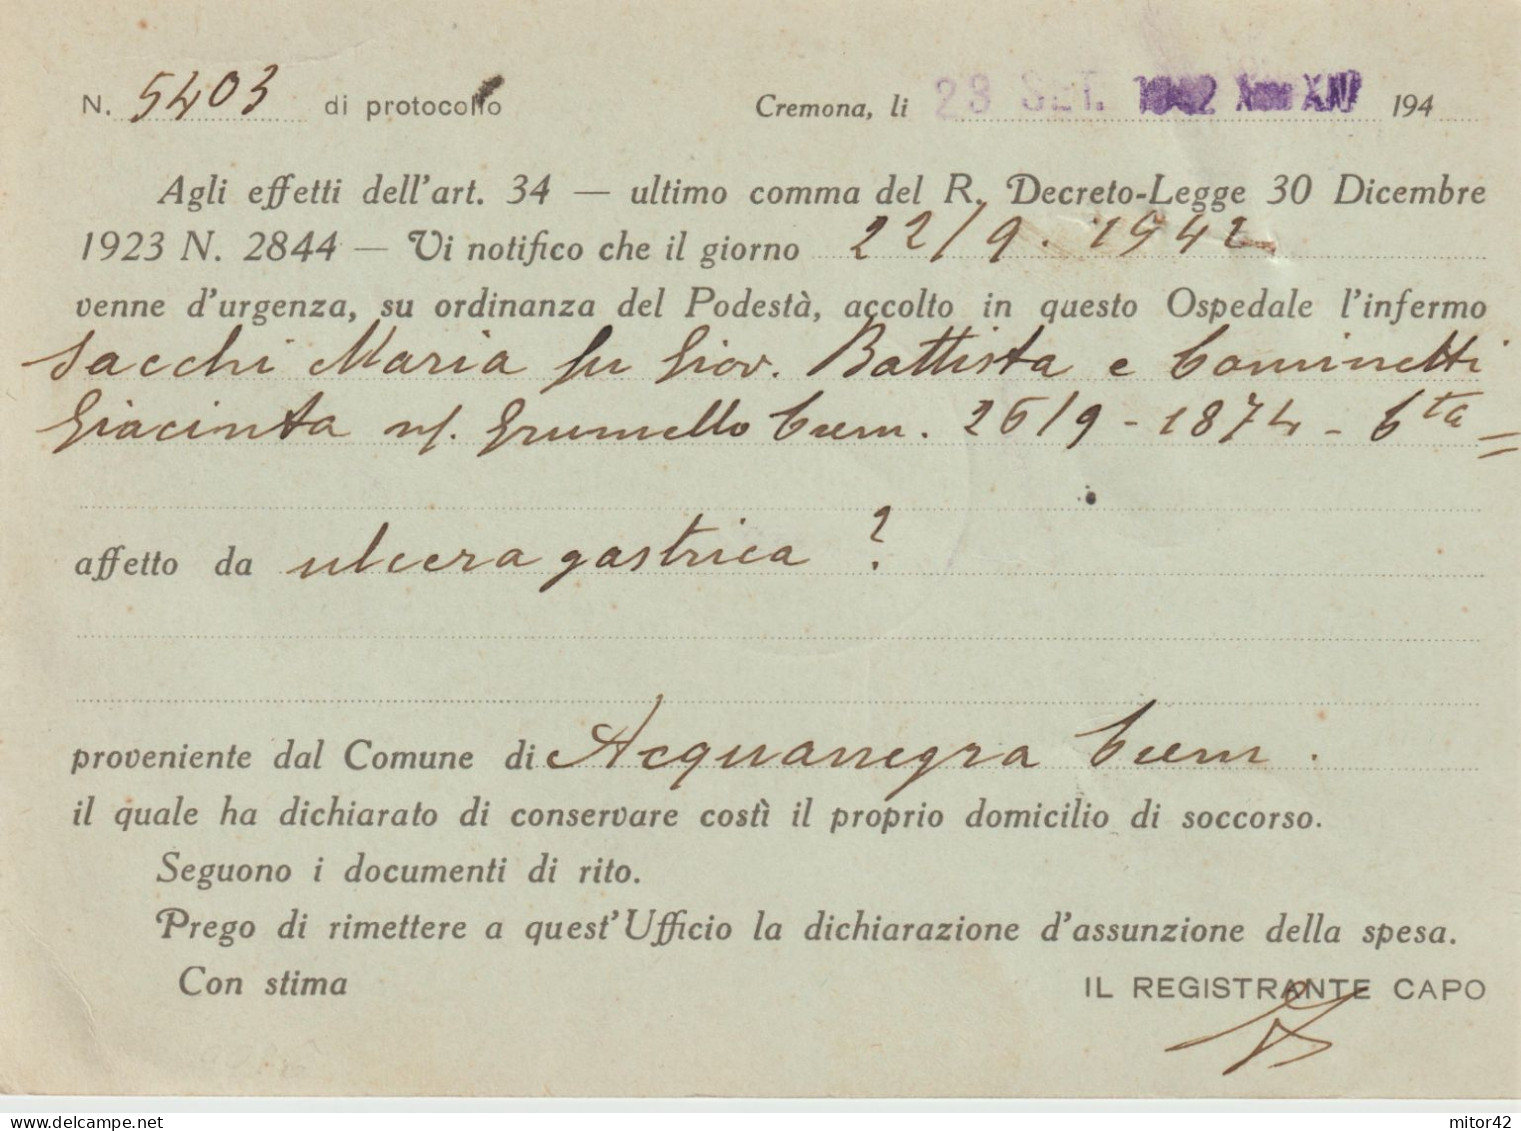 N. 5403 di protocollo Cremona, li 23 SET. 1942 194
Agli effetti dell'art. 34 — ultimo comma del R. Decreto-Legge 30 Dicembre
1923 N. 2844 — Vi notifico che il giorno 22/9. 1942
venne d'urgenza, su ordinanza del Podestà, accolto in questo Ospedale l'infermo
Sacchi Maria fu Giov. Battista e Cominetti
Giacinta n/. Grumello Crem. 26/9 - 1874 - 6ta =
affetto da ulcera gastrica ?
proveniente dal Comune di Acquanegra Crem.
il quale ha dichiarato di conservare costì il proprio domicilio di soccorso.
Seguono i documenti di rito.
Prego di rimettere a quest'Ufficio la dichiarazione d'assunzione della spesa.
Con stima IL REGISTRANTE CAPO
mitor42